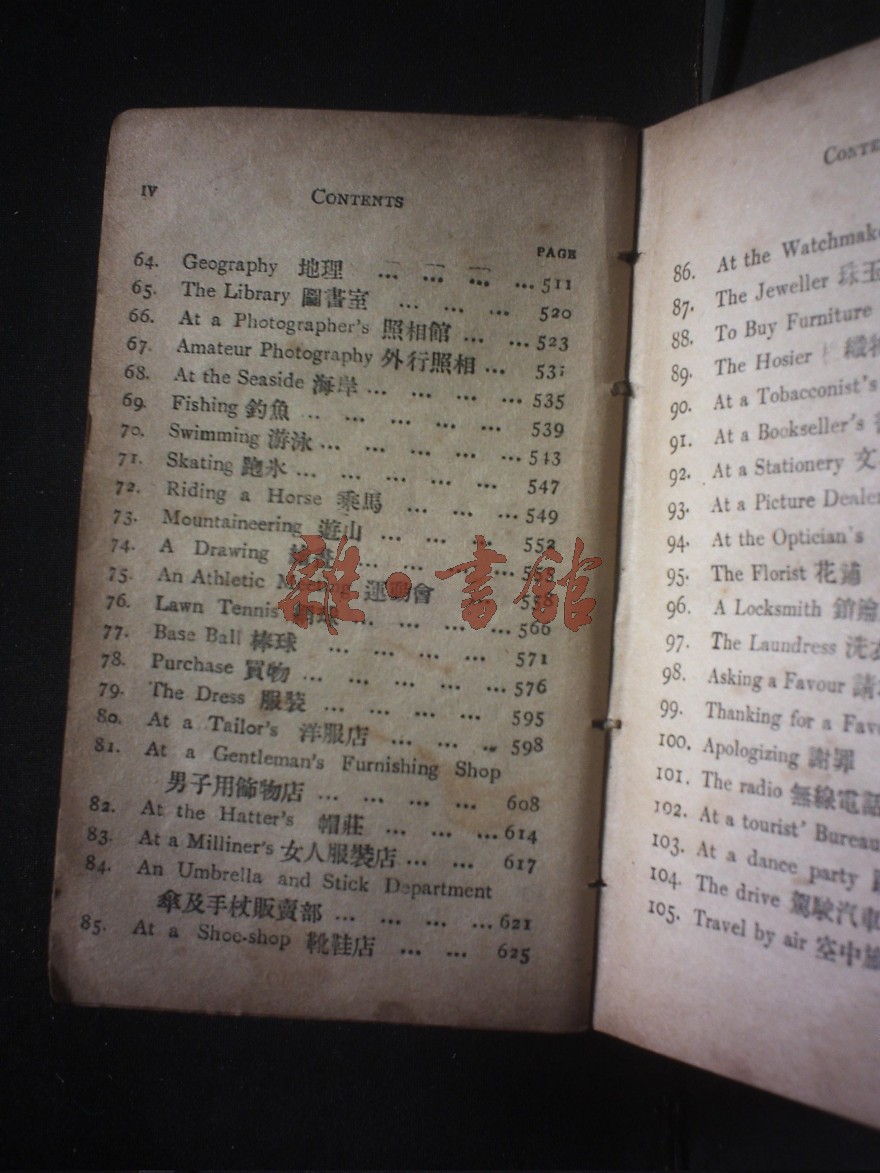 IV
CONTENTS
PAGE
64. Geography 地理 ... ... ... ... 511
65. The Library 圖書室 ... ... ... 520
66. At a Photographer's 照相館 ... ... 523
67. Amateur Photography 外行照相 ...
68. At the Seaside 海岸 ... ... ... ... 535
69. Fishing 釣魚 ... ... ... ... ... 539
70. Swimming 游泳 ... ... ... ... ... 543
71. Skating 跑氷 ... ... ... ... ... 547
72. Riding a Horse 乘馬 ... ... ... 549
73. Mountaineering 遊山 ... ... ... 552
74. A Drawing ... ... ... ...
75. An Athletic Meeting 運動會 558
76. Lawn Tennis ... ... ... ... 566
77. Base Ball 棒球 ... ... ... ... 571
78. Purchase 買物 ... ... ... ... ... 576
79. The Dress 服裝 ... ... ... ... 595
80. At a Tailor's 洋服店 ... ... ... 598
81. At a Gentleman's Furnishing Shop
男子用飾物店 ... ... ... ... 608
82. At the Hatter's 帽莊 ... ... ... 614
83. At a Milliner's 女人服裝店 ... ... 617
84. An Umbrella and Stick Department
傘及手杖販賣部 ... ... ... ... 621
85. At a Shoe-shop 靴鞋店 ... ... 625
雜·書館
86. At the
87. The Jeweller 珠玉
88. To Buy Furniture
89. The Hosier
90. At a Tobacconist's
91. At a Bookseller's
92. At a Stationery 文
93. At a Picture
94. At the Optician's
95. The Florist 花鋪
96. A Locksmith
97. The Laundress 洗衣
98. Asking a Favour 請
99. Thanking for a
100. Apologizing 謝罪
101. The radio 無線電話
102. At a tourist' Bureau
103. At a dance party
104. The drive 駕駛汽車
105. Travel by air 空中